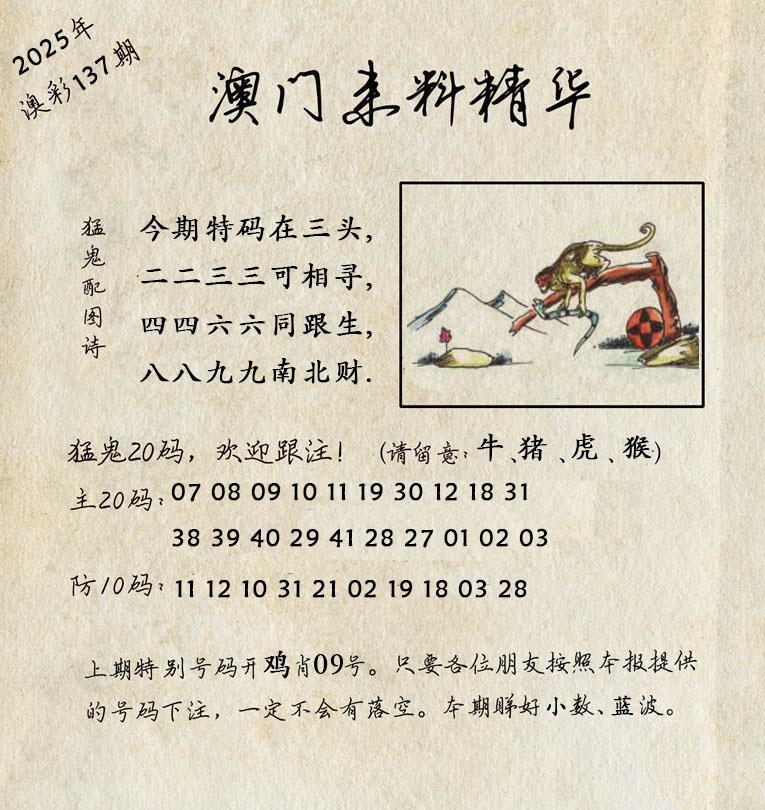 2025年
澳彩137期
澳门来料精华
猛鬼配图诗
今期特码在三头,
二二三三可相寻,
四四六六同跟生,
八八九九南北财.
猛鬼20码，欢迎跟注！ (请留意: 牛、猪、虎、猴)
主20码: 07 08 09 10 11 19 30 12 18 31
38 39 40 29 41 28 27 01 02 03
防10码: 11 12 10 31 21 02 19 18 03 28
上期特别号码开鸡肖09号。只要各位朋友按照本报提供
的号码下注，一定不会有落空。本期睇好小数、蓝波。